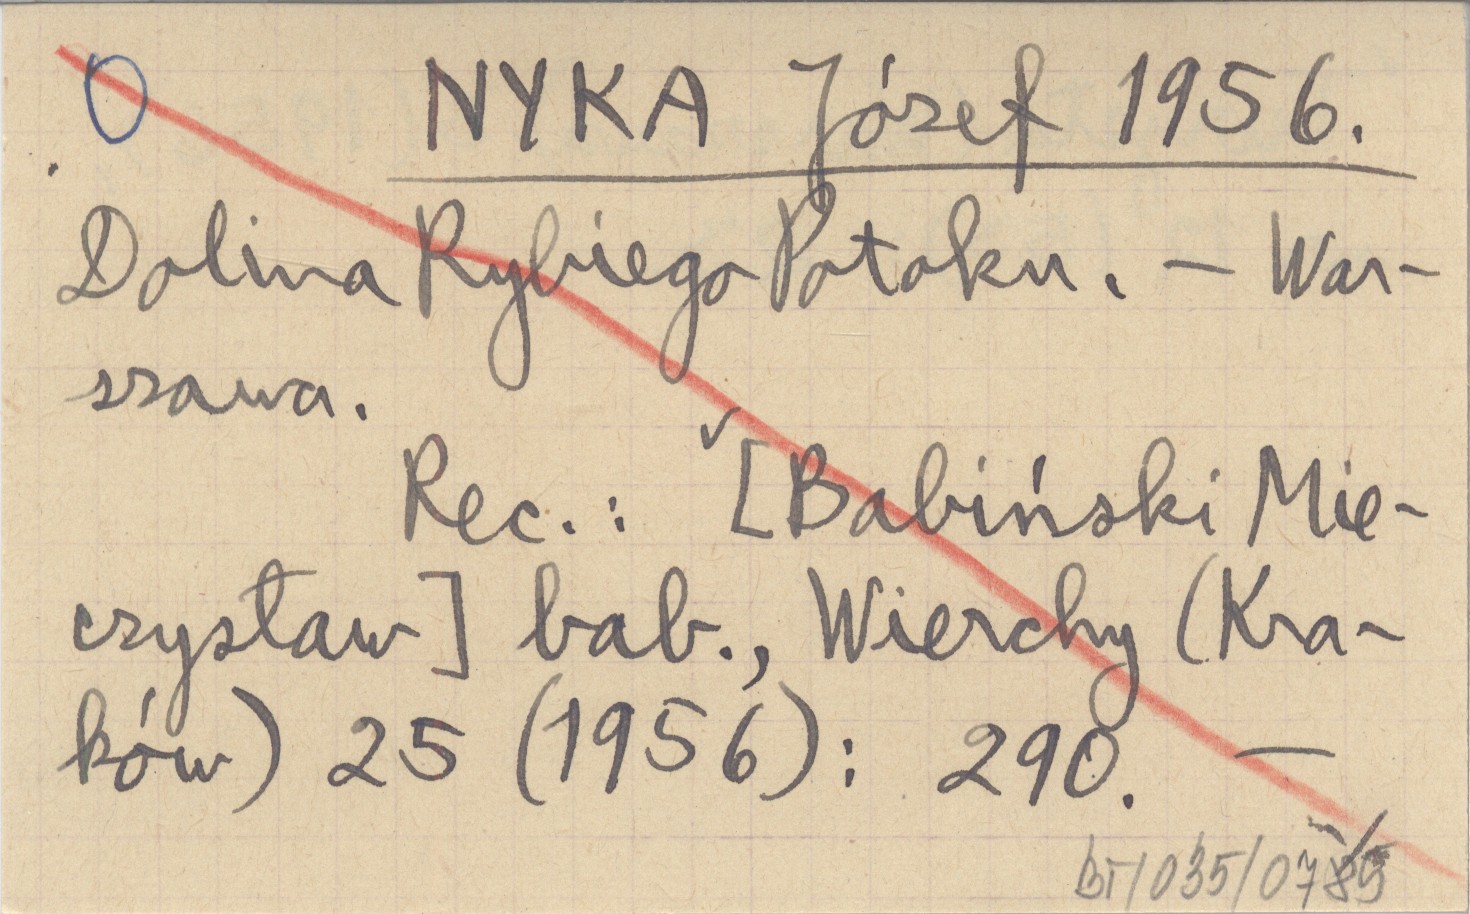 O NYKA Józef 1956.
Dolina Rybiego Potoku. — War-
szawa.
Rec.: ✓ [Babiński Mie-
czysław] bab., Wierchy (Kra-
ków) 25 (1956): 290. —